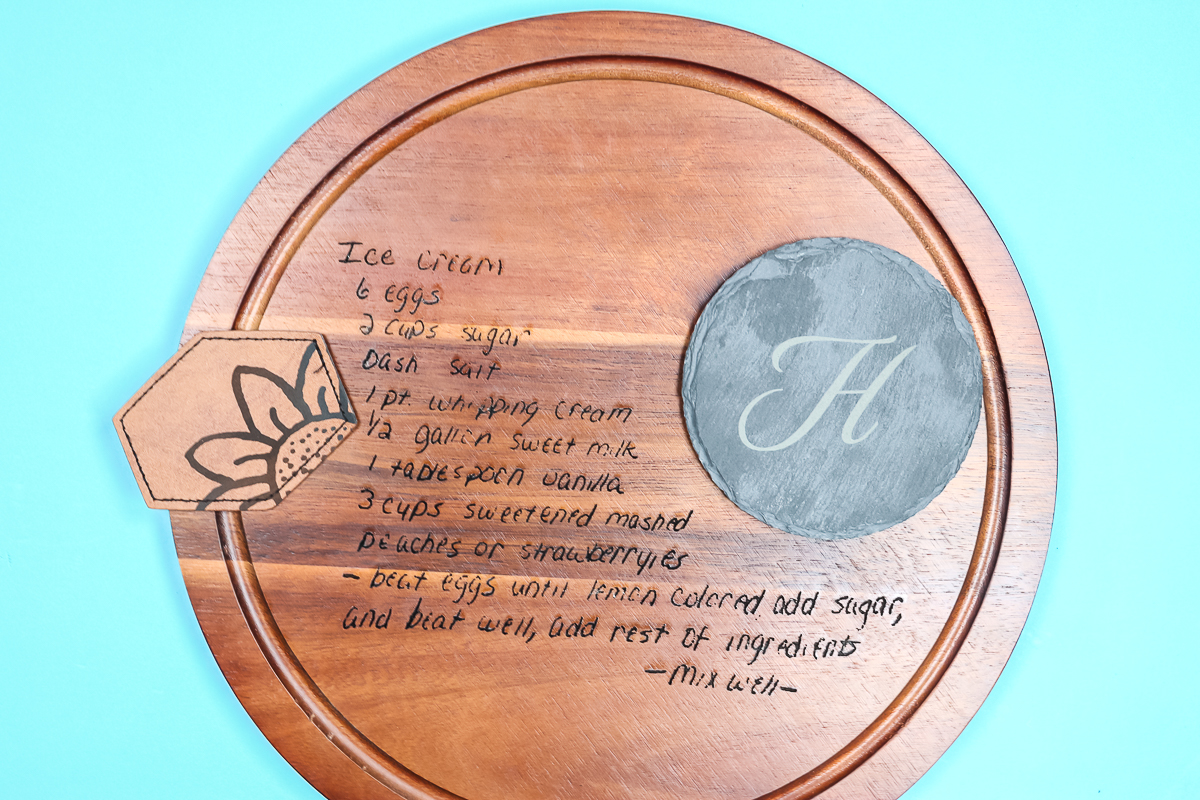 Ice cream
6 eggs
2 cups sugar
Dash salt
1 pt. whipping cream
1/2 gallon sweet milk
1 tablespoon vanilla
3 cups sweetened mashed
peaches or strawberryies
- beat eggs until lemon colored, add sugar,
and beat well, add rest of ingredients
- Mix well -
H